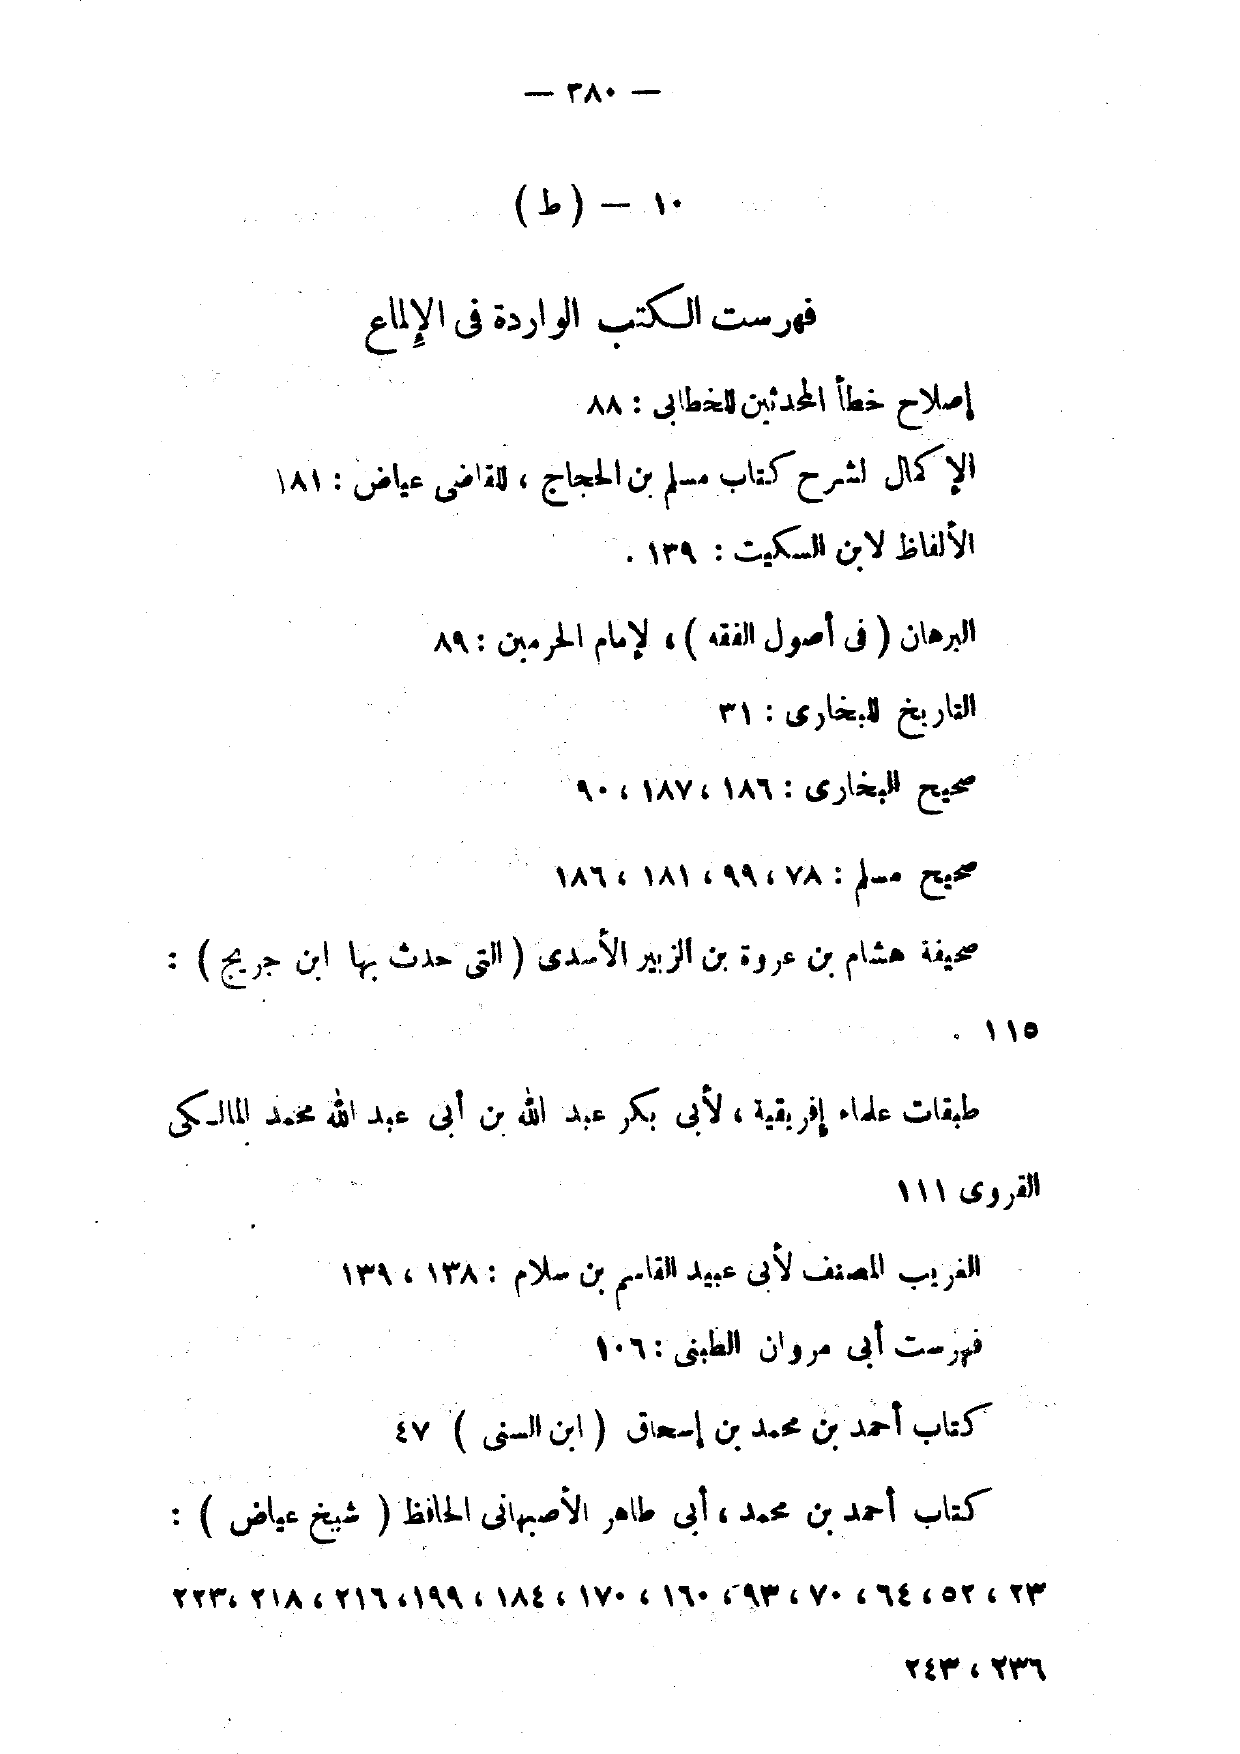 — ٣٨٠ —
١٠ — ( ط )
فهرست الكتب الواردة فى الإلماع
إصلاح خطأ المحدثين للخطابى : ٨٨
الإكمال لشرح كتاب مسلم بن الحجاج ، للقاضى عياض : ١٨١
الألفاظ لابن السكيت : ١٣٩ .
البرهان ( فى أصول الفقه ) ، لإمام الحرمين : ٨٩
التاريخ للبخارى : ٣١
صحيح البخارى : ١٨٦ ، ١٨٧ ، ٩٠
صحيح مسلم : ٧٨ ، ٩٩ ، ١٨١ ، ١٨٦
صحيفة هشام بن عروة بن الزبير الأسدى ( التى حدث بها ابن جريج ) :
١١٥ .
طبقات علماء إفريقية ، لأبى بكر عبد الله بن أبى عبد الله محمد المالكى
القروى ١١١
الغريب المصنف لأبى عبيد القاسم بن سلام : ١٣٨ ، ١٣٩
فهرست أبى مروان الطبنى : ١٠٦
كتاب أحمد بن محمد بن إسحاق ( ابن السنى ) ٤٧
كتاب أحمد بن محمد ، أبى طاهر الأصبهانى الحافظ ( شيخ عياض ) :
٢٣ ، ٥٢ ، ٦٤ ، ٧٠ ، ٩٣ ، ١٦٠ ، ١٧٠ ، ١٨٤ ، ١٩٩ ، ٢١٦ ، ٢١٨ ، ٢٢٣
٢٣٦ ، ٢٤٣